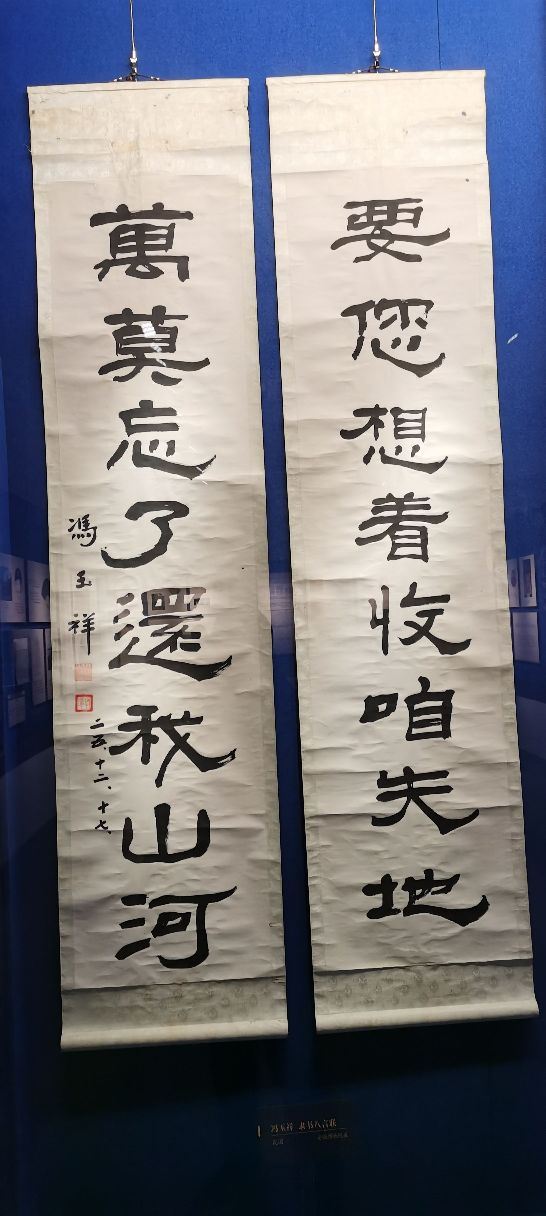 要您想着收咱失地
萬莫忘了還我山河
馮玉祥
二五、十二、十七、
冯玉祥 隶书八言联
民国